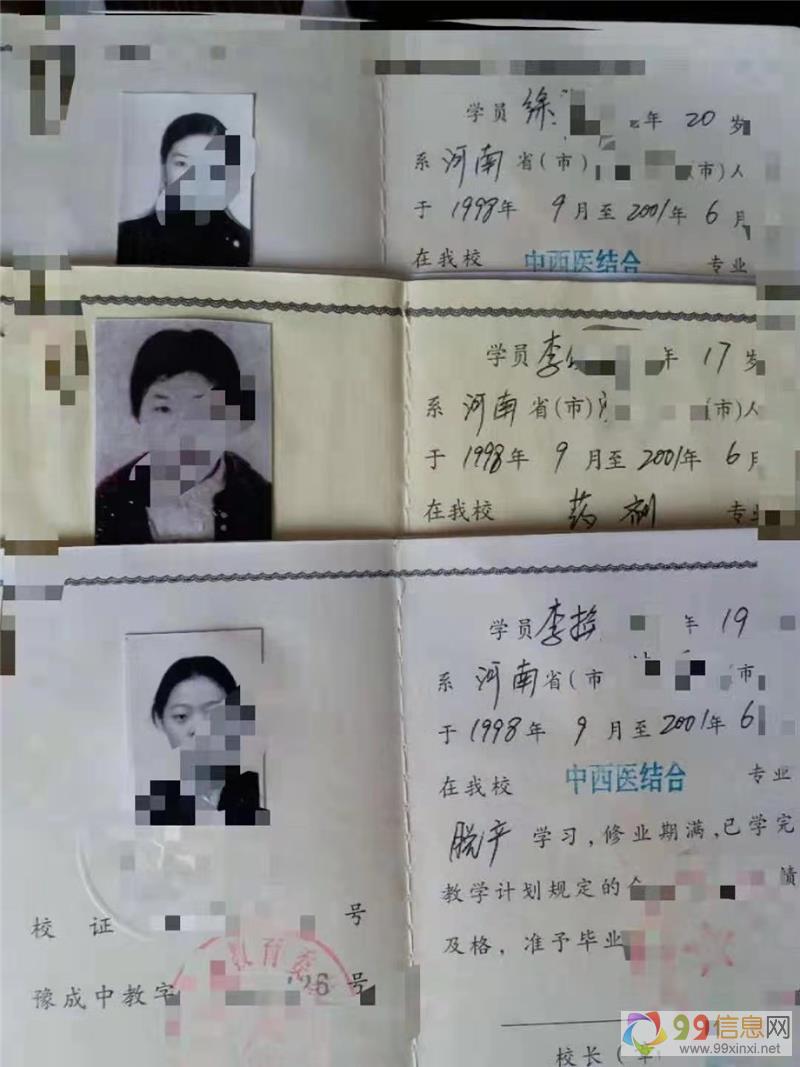 学员 徐 年 20 岁
系 河南 省(市) (市)人
于 1998年 9月至 2001年 6月
在我校 中西医结合 专业
学员 李 年 17 岁
系 河南 省(市) (市)人
于 1998年 9月至 2001年 6月
在我校 药剂 专业
学员 李 年 19
系 河南 省(市 市)
于 1998年 9月至 2001年 6
在我校 中西医结合 专业
脱产 学习,修业期满,已学完
教学计划规定的 绩
及格,准予毕业
校 证 号
教育委
豫成中教字 26 号
校长(章
99信息网
www.99xinxi.net